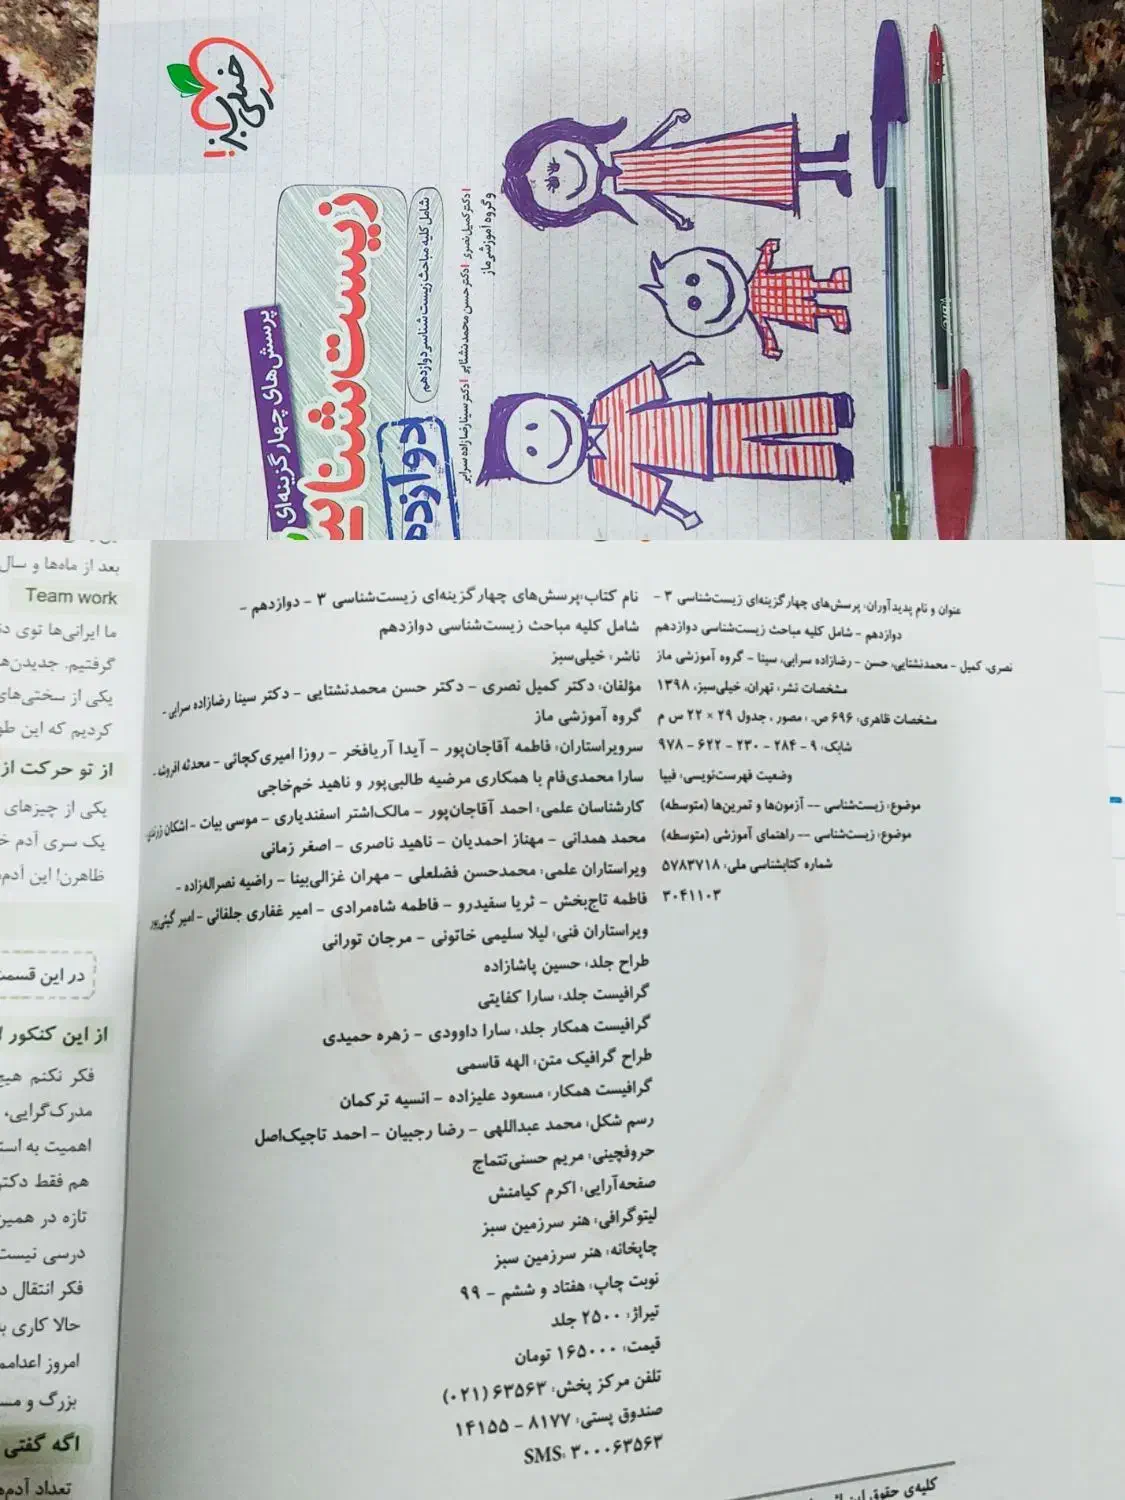 خیلی سبز!
پرسش‌های چهارگزینه‌ای
شامل کلیه مباحث زیست شناسی دوازدهم
دکتر کمیل نصری | دکتر حسن محمدنشتایی | دکتر سینا رضازاده سرابی
و گروه آموزشی ماز
عنوان و نام پدیدآوران: پرسش‌های چهارگزینه‌ای زیست‌شناسی ۳ –
دوازدهم – شامل کلیه مباحث زیست‌شناسی دوازدهم
نصری، کمیل – محمدنشتایی، حسن – رضازاده سرابی، سینا – گروه آموزشی ماز
مشخصات نشر: تهران، خیلی‌سبز، ۱۳۹۸
مشخصات ظاهری: ۶۹۶ ص. ، مصور ، جدول ۲۹ × ۲۲ س م
شابک: ۹ – ۲۸۴ – ۲۳۰ – ۶۲۲ – ۹۷۸
وضعیت فهرست‌نویسی: فیپا
موضوع: زیست‌شناسی -- آزمون‌ها و تمرین‌ها (متوسطه)
موضوع: زیست‌شناسی -- راهنمای آموزشی (متوسطه)
شماره کتابشناسی ملی: ۵۷۸۳۷۱۸
۳۰۴۱۱۰۳
نام کتاب: پرسش‌های چهارگزینه‌ای زیست‌شناسی ۳ – دوازدهم –
شامل کلیه مباحث زیست‌شناسی دوازدهم
ناشر: خیلی‌سبز
مؤلفان: دکتر کمیل نصری – دکتر حسن محمدنشتایی – دکتر سینا رضازاده سرابی –
گروه آموزشی ماز
سرویراستاران: فاطمه آقاجان‌پور – آیدا آریافخر – روزا امیری‌کچائی – محدثه افروشه –
سارا محمدی‌فام با همکاری مرضیه طالبی‌پور و ناهید خم‌خاجی
کارشناسان علمی: احمد آقاجان‌پور – مالک‌اشتر اسفندیاری – موسی بیات – اشکان
محمد همدانی – مهناز احمدیان – ناهید ناصری – اصغر زمانی
ویراستاران علمی: محمدحسن فضلعلی – مهران غزالی‌بینا – راضیه نصراله‌زاده –
فاطمه تاج‌بخش – ثریا سفیدرو – فاطمه شاه‌مرادی – امیر غفاری جلفائی – امیر گیتی‌پور
ویراستاران فنی: لیلا سلیمی خاتونی – مرجان تورانی
طراح جلد: حسین پاشازاده
گرافیست جلد: سارا کفایتی
گرافیست همکار جلد: سارا داوودی – زهره حمیدی
طراح گرافیک متن: الهه قاسمی
گرافیست همکار: مسعود علیزاده – انسیه ترکمان
رسم شکل: محمد عبداللهی – رضا رجبیان – احمد تاجیک‌اصل
حروفچینی: مریم حسنی‌تتماج
صفحه‌آرایی: اکرم کیامنش
لیتوگرافی: هنر سرزمین سبز
چاپخانه: هنر سرزمین سبز
نوبت چاپ: هفتاد و ششم – ۹۹
تیراژ: ۲۵۰۰ جلد
قیمت: ۱۶۵۰۰۰ تومان
تلفن مرکز پخش: ۶۳۵۶۳ (۰۲۱)
صندوق پستی: ۸۱۷۷ – ۱۴۱۵۵
SMS: ۳۰۰۰۶۳۵۶۳
کلیه‌ی حقوق این
بعد از ماه‌ها و سال
Team work
ما ایرانی‌ها توی
گرفتیم. جدیدن‌ها
یکی از سختی‌های
کردیم که این طو
از تو حرکت از
یکی از چیزهای
یک سری آدم
ظاهرن! این آدم
در این قسمت
از این کنکور
فکر نکنم هیچ
مدرک‌گرایی،
اهمیت به
هم فقط دکتر
تازه در همین
درسی نیست
فکر انتقال
حالا کاری
امروز
بزرگ و
اگه گفتی
تعداد آدم